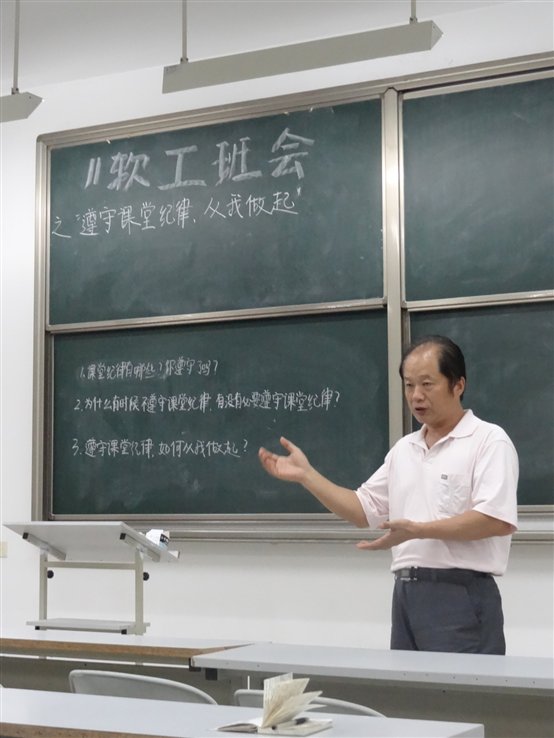 11软工班会
之“遵守课堂纪律、从我做起”
1.课堂纪律有哪些？你遵守了吗？
2.为什么有时候不遵守课堂纪律，有没有必要遵守课堂纪律？
3.遵守课堂纪律，如何从我做起？